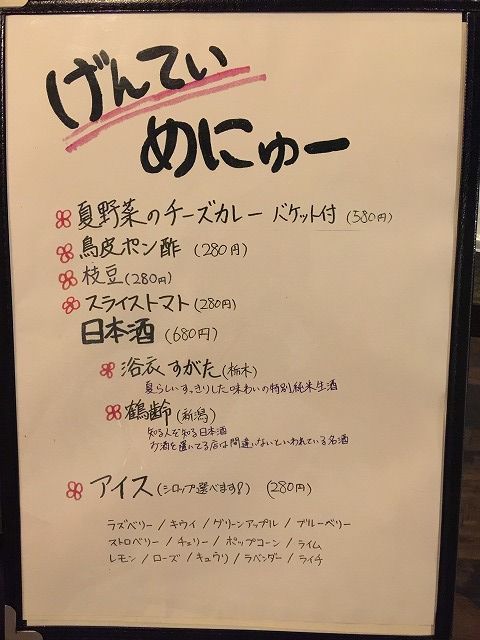 げんてい
めにゅー
夏野菜のチーズカレー バケット付 (580円)
鳥皮ポン酢 (280円)
枝豆 (280円)
スライストマト (280円)
日本酒 (680円)
浴衣すがた (栃木)
夏らしいすっきりした味わいの特別純米生酒
鶴齢 (新潟)
知る人ぞ知る日本酒
お酒を置いてる店は間違いないといわれている名酒
アイス (シロップ選べます!) (280円)
ラズベリー / キウイ / グリーンアップル / ブルーベリー
ストロベリー / チェリー / ポップコーン / ライム
レモン / ローズ / キュウリ / ラベンダー / ライチ